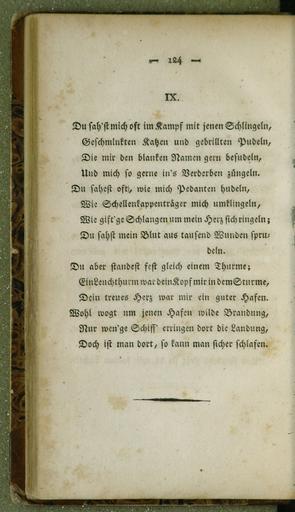 — 124 —
IX.
Du sah'st mich oft im Kampf mit jenen Schlingeln,
Geschminkten Katzen und gebrillten Pudeln,
Die mir den blanken Namen gern besudeln,
Und mich so gerne in's Verderben züngeln.
Du sahest oft, wie mich Pedanten hudeln,
Wie Schellenkappenträger mich umklingeln,
Wie gift'ge Schlangen um mein Herz sich ringeln;
Du sahst mein Blut aus tausend Wunden spru-
deln.
Du aber standest fest gleich einem Thurme;
Ein Leuchthurm war dein Kopf mir in dem Sturme,
Dein treues Herz war mir ein guter Hafen.
Wohl wogt um jenen Hafen wilde Brandung,
Nur wen'ge Schiff' erringen dort die Landung,
Doch ist man dort, so kann man sicher schlafen.